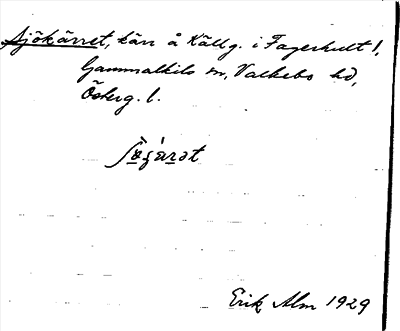 Sjökärret, kärr å Källg. i Fagerhult 1,
Gammalkils sn, Valkebo hd,
Österg. l.
Erik Alm 1929